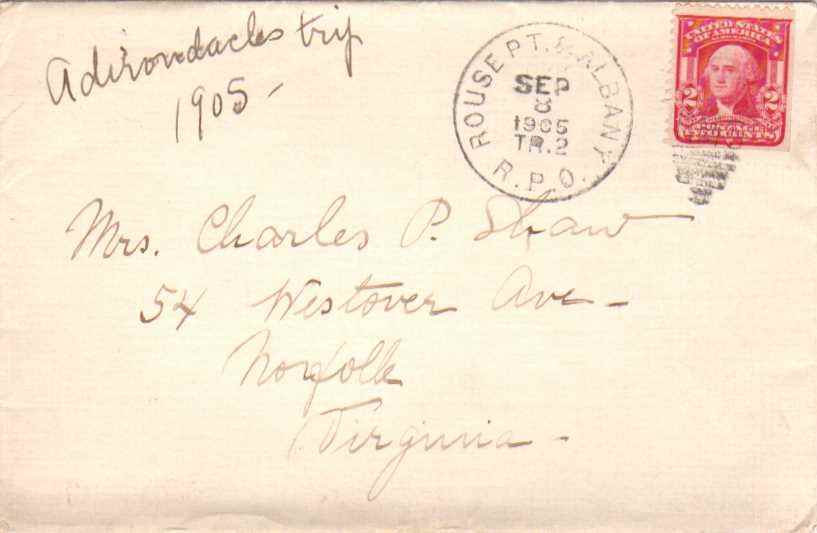 Adirondacks trip
1905 -
ROUSES PT. & ALBANY
SEP
8
1905
TR.2
R.P.O.
UNITED STATES
OF AMERICA
2 2
POSTAGE
TWO CENTS
Mrs. Charles P. Shaw
54 Westover Ave -
Norfolk
Virginia -